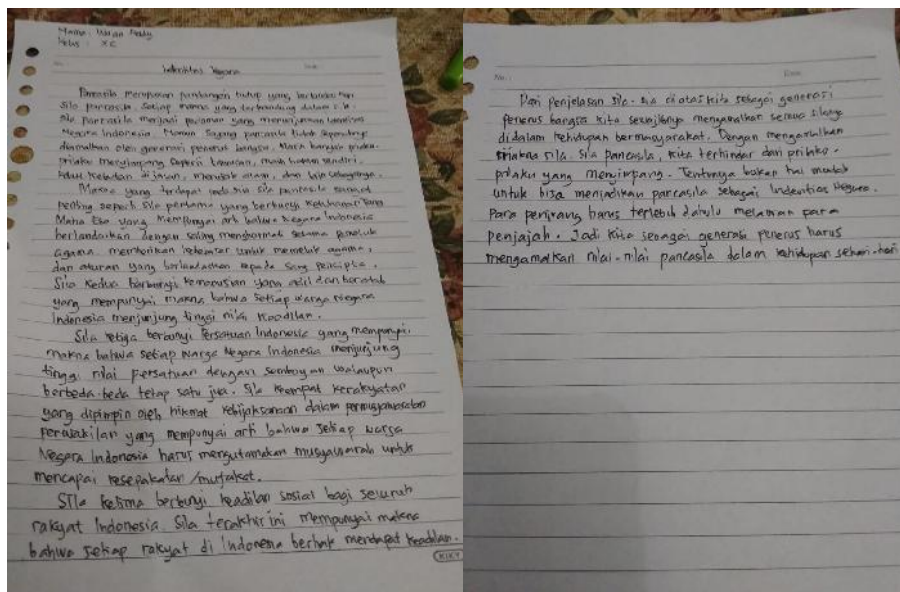 Nama :
Kelas : XC
Identitas Negara
Pancasila merupakan pandangan hidup yang berlandaskan
Sila pancasila. Setiap makna yang terkandung dalam sila-
sila pancasila menjadi pedoman yang menunjukkan identitas
Negara Indonesia. Namun Sayang pancasila tidak sepenuhnya
diamalkan oleh generasi penerus bangsa. Maka banyak prilaku-
prilaku menyimpang seperti tawuran, main hakim sendiri,
di jalan, merusak alam, dan lain sebagainya.
Makna yang terdapat pada sila pancasila sangat
penting seperti sila pertama yang berbunyi Ketuhanan Yang
Maha Esa yang mempunyai arti bahwa Negara Indonesia
berlandaskan dengan saling menghormati sesama pemeluk
agama, memberikan kebebasan untuk memeluk agama,
dan aturan yang berlandaskan kepada Sang Pencipta.
Sila Kedua berbunyi Kemanusiaan yang adil dan beradab
yang mempunyai makna bahwa setiap warga Negara
Indonesia menjunjung tinggi nilai Keadilan.
Sila ketiga berbunyi Persatuan Indonesia yang mempunyai
makna bahwa setiap warga Negara Indonesia menjunjung
tinggi nilai persatuan dengan semboyan walaupun
berbeda-beda tetap satu jua. Sila keempat kerakyatan
yang dipimpin oleh hikmat kebijaksanaan dalam permusyawaratan
perwakilan yang mempunyai arti bahwa setiap warga
Negara Indonesia harus mengutamakan musyawarah untuk
mencapai kesepakatan /mufakat.
Sila kelima berbunyi keadilan sosial bagi seluruh
rakyat Indonesia. Sila terakhir ini mempunyai makna
bahwa setiap rakyat di Indonesia berhak mendapat keadilan.
KIKY
No. :
Date :
Dari penjelasan sila-sila di atas kita sebagai generasi
penerus bangsa kita seharusnya mengamalkan semua silanya
didalam kehidupan bermasyarakat. Dengan mengamalkan
makna sila-sila pancasila, kita terhindar dari prilaku-
prilaku yang menyimpang. Tentunya bukan hal mudah
untuk bisa menjadikan pancasila sebagai Indentias Negara.
Para pejuang harus terlebih dahulu melawan para
penjajah. Jadi kita sebagai generasi penerus harus
mengamalkan nilai-nilai pancasila dalam kehidupan sehari-hari